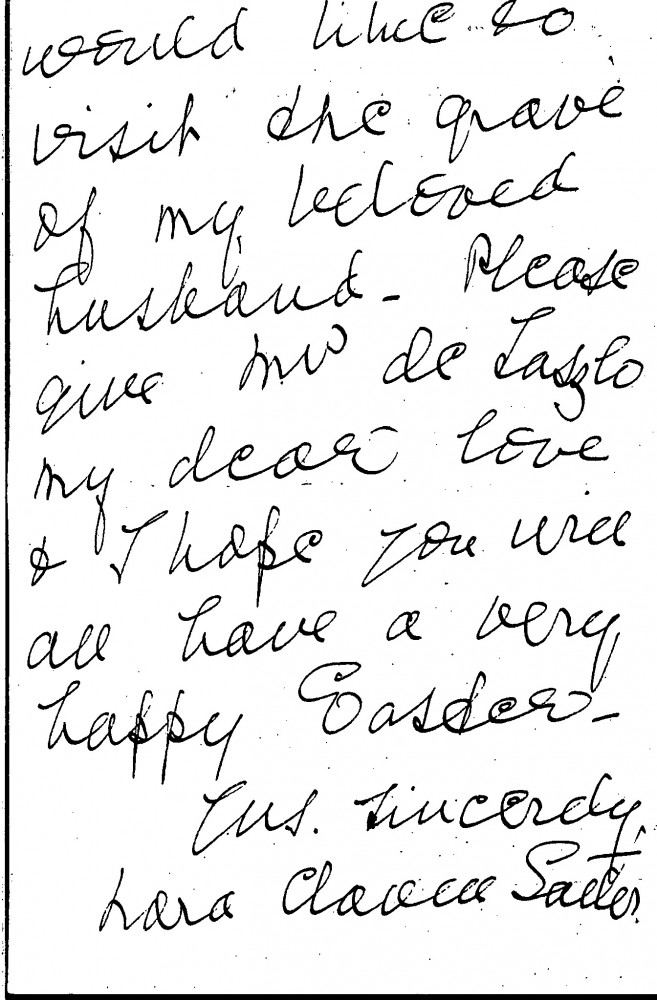 would like to
visit the grave
of my beloved
husband - Please
give Mrs de Laszlo
my dear love
& I hope you will
all have a very
happy Easter -
Yrs. sincerely,
Lara